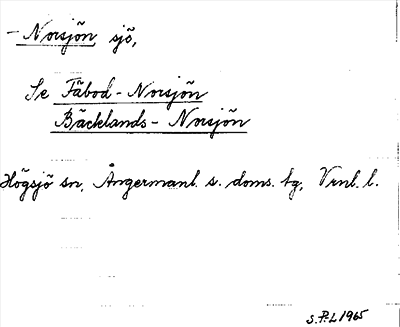 - Norsjön sjö,
Se Fäbod - Norsjön
Bäcklands - Norsjön
Högsjö sn, Ångermanl. s. doms. tg, Vrnl. l.
S. P-L 1965